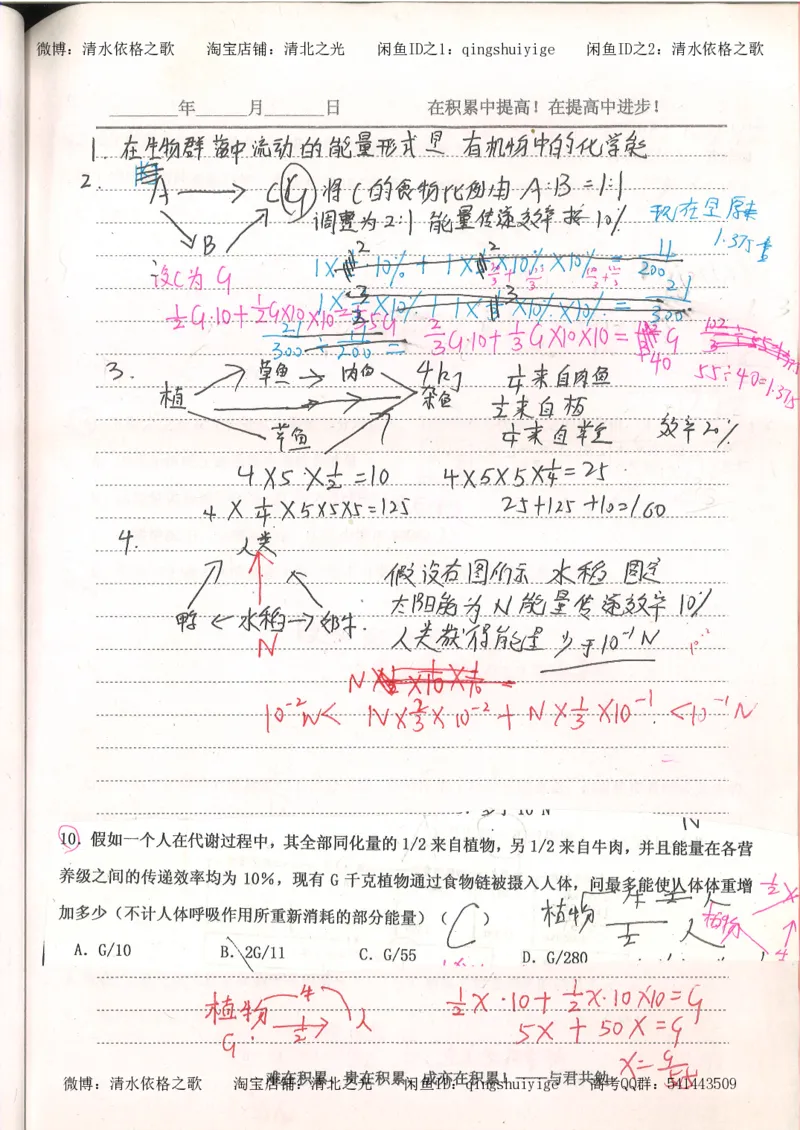 微博：清水依格之歌 淘宝店铺：清北之光 闲鱼ID之1：qingshuiyige 闲鱼ID之2：清水依格之歌
年 月 日 在积累中提高！在提高中进步！
1. 在生物群落中流动的能量形式是 有机物中的化学能
2. A → C(G) 将C的食物比例由 A:B=1:1
B 调整为2:1 能量传递效率按10% 现在是原来1.375倍
设C为G
½G·10+½G×10×10=55G
⅔G·10+⅓G×10×10=40G
55÷40=1.375
3. 植 草鱼 → 肉鱼 4kg 杂鱼 ¼来自肉鱼
½来自植
草鱼 ¼来自草鱼 效率20%
4×5×½=10 4×5×5×¼=25
4×¼×5×5×5=125 25+125+10=160
4. 人类
鸭 ← 水稻 → 奶牛
N
假设右图所示 水稻 固定
太阳能为N 能量传递效率10%
人类获得能量 少于10⁻¹N
10⁻²N< N×⅔×10⁻²+N×⅓×10⁻¹ <10⁻¹N
10. 假如一个人在代谢过程中，其全部同化量的 1/2 来自植物，另 1/2 来自牛肉，并且能量在各营
养级之间的传递效率均为 10%，现有 G 千克植物通过食物链被摄入人体，问最多能使人体体重增
加多少（不计人体呼吸作用所重新消耗的部分能量）（ C ）
A. G/10 B. 2G/11 C. G/55 D. G/280
植物 牛 ½ 人
植物 牛 人
G ½
½x·10+½x·10×10=G
5x+50x=G
难在积累！贵在积累！成亦在积累！——与君共勉
微博：清水依格之歌 淘宝店铺：清北之光 闲鱼ID：qingshuiyige 高考QQ群：541443509